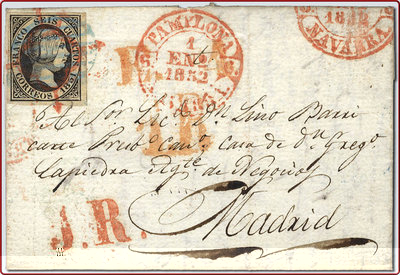 FRANCO SEIS CUARTOS 1851
CORREOS
PAMPLONA
1
ENº
1852
1852
NAVARRA
Al Sor Licdo Dn Lino Barri
carte Presbo Cano casa de Dn Grego
Lapiedra Agte de Negocios
Madrid
J.R.